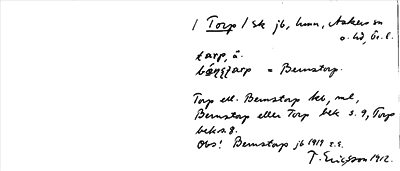 / Torp / Sk jb, hmn, Askers sn
o. hd, Ör. l.
tarp, ä.
= Bernstorp.
Torp ell. Bernstorp beb, ml,
Bernstorp eller Torp bek s. 9, Torp
bek s 8.
Obs! Bernstorp jb 1919 s.s.
T. Ericsson 1912.